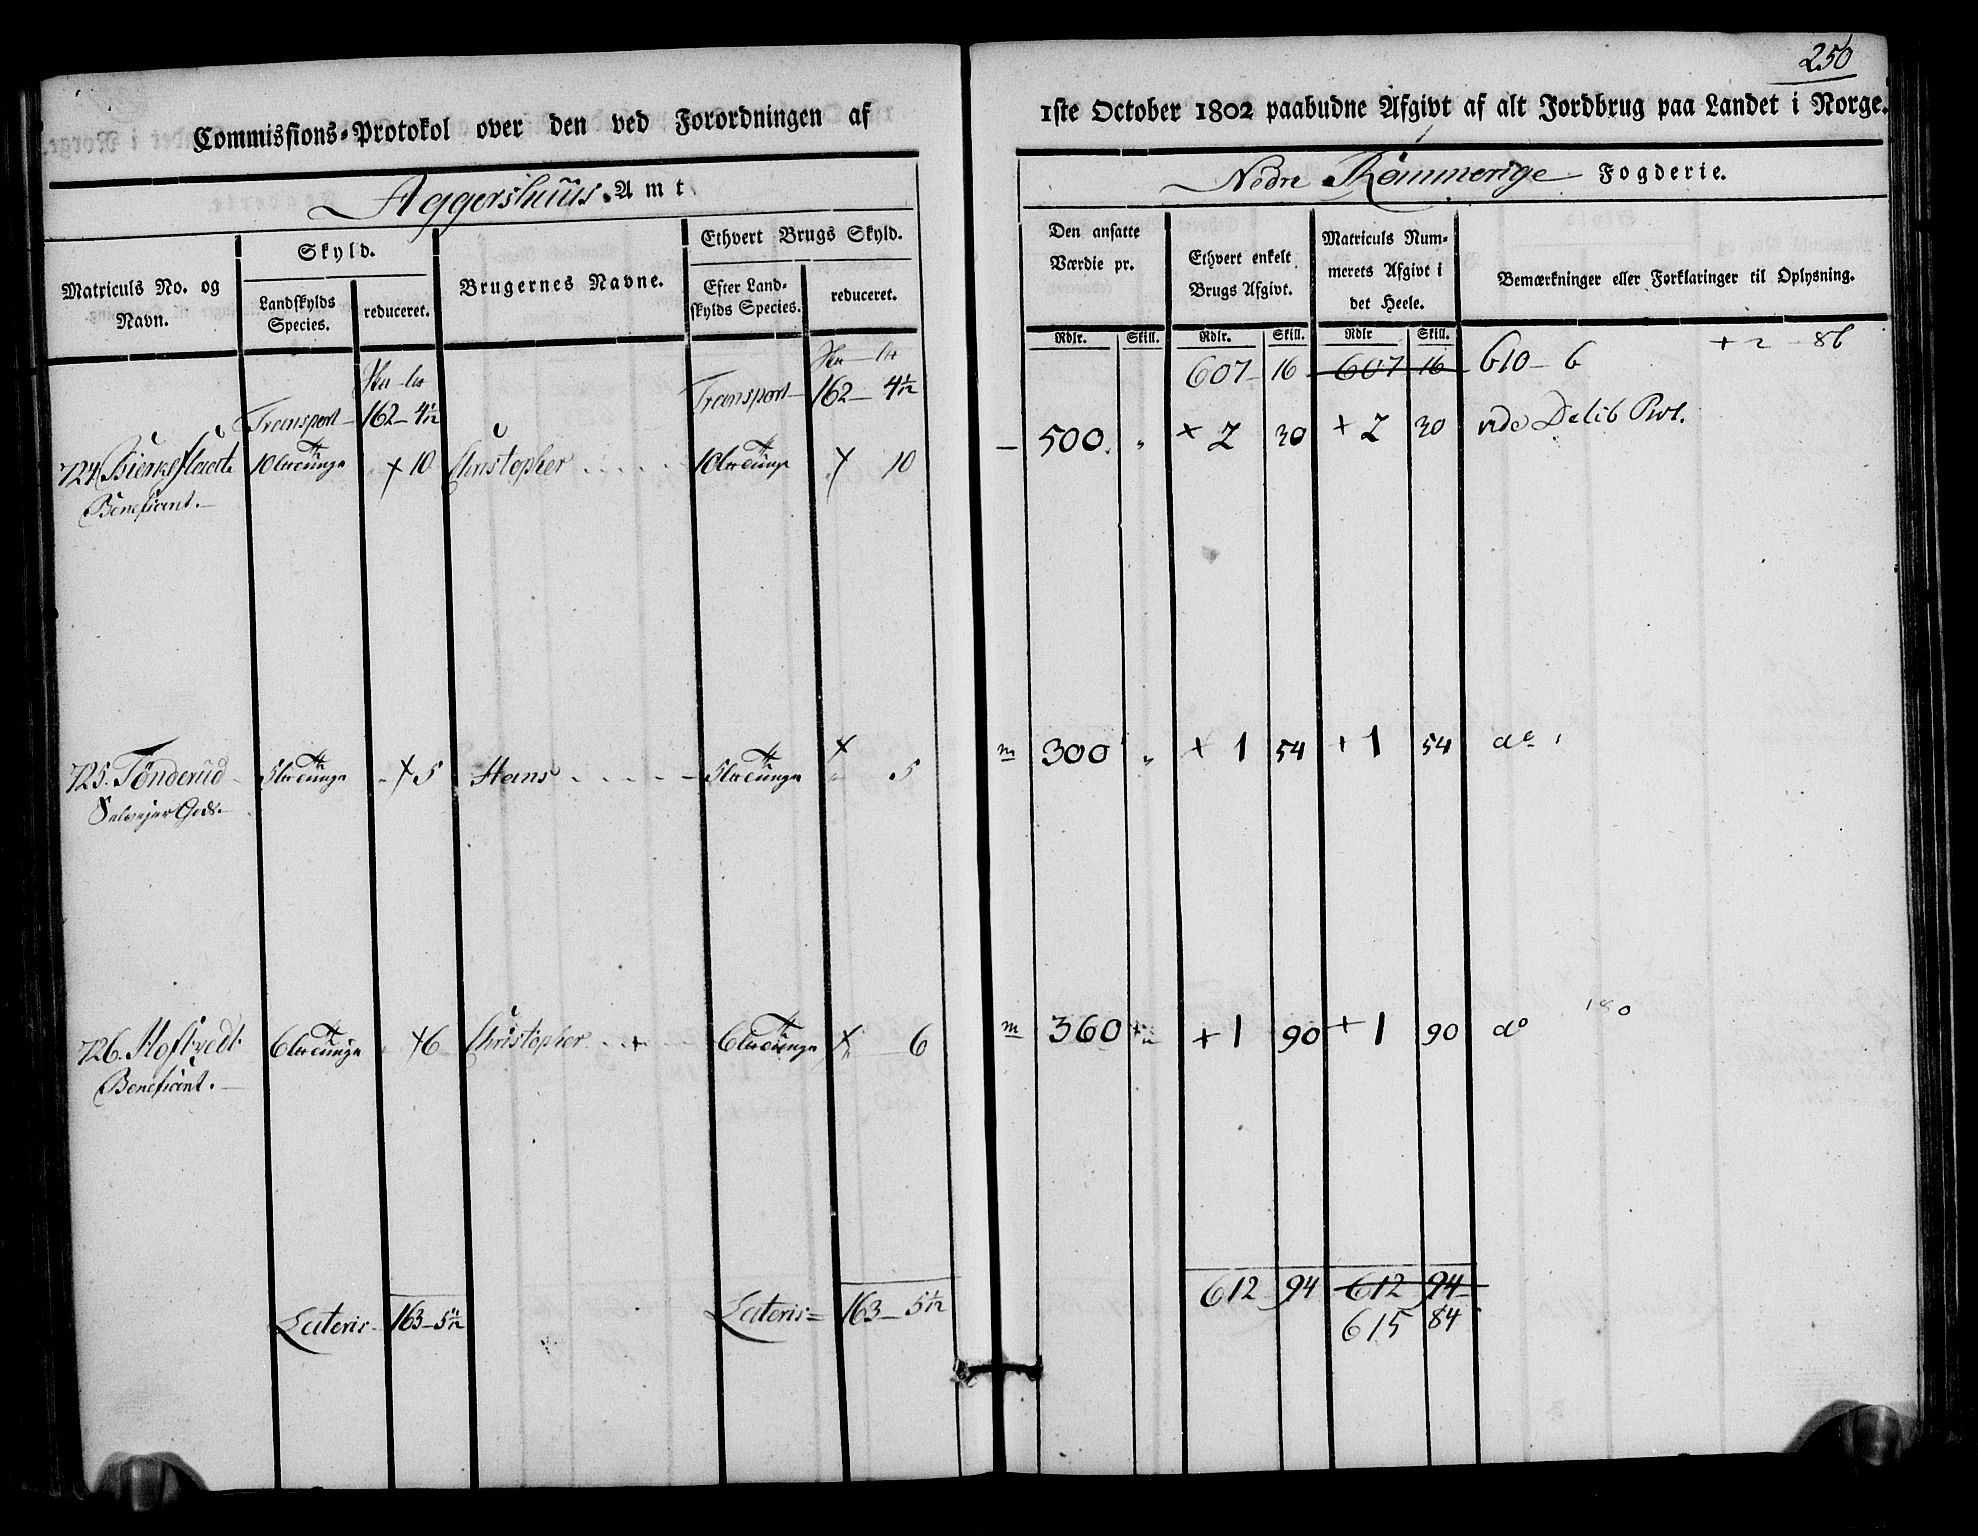 250
Commissions-Protokol over den ved Forordningen af 1ste October 1802 paabudne Afgivt af alt Jordbrug paa Landet i Norge.
Aggershuus Amt.
Nedre Rommerige Fogderie.
Matriculs No. og Navn.
Skyld.
Landskylds Species.
reduceret.
Brugernes Navne.
Ethvert Brugs Skyld.
Efter Landskylds Species.
reduceret.
Den ansatte Værdie pr.
Rdlr. Skill.
Ethvert enkelt Brugs Afgivt.
Rdlr. Skill.
Matriculs Nummerets Afgivt i det Heele.
Rdlr Skill.
Bemærkninger eller Forklaringer til Oplysning.
Transport 162 - 4½ Transport 162 - 4½ 607 - 16 607 16 610 - 6 + 2 - 86
724. 10 + 10 Christopher 10 10 500 " + 2 30 + 2 30 vide Delib Prot.
Beneficent.
725. Tønderud 5 + 5 Hans 5 + 5 m 300 " + 1 54 + 1 54 do
Selvejer Gods.
726. Hofsvedt 6 +6 Christopher + 6 + 6 m 360 + 1 90 + 1 90 do 180
Beneficent.
Lateris 163 - 5½ Lateris 163 - 5½ 612 94 612 94
615 84